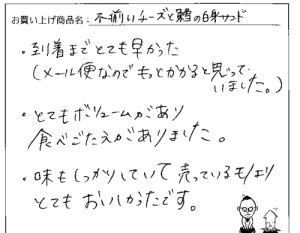 お買い上げ商品名: 不揃いチーズと鱈の白身サンド
・到着までとても早かった
(メール便なのでもっとかかると思って
いました。)
・とてもボリュームがあり
食べごたえがありました。
・味もしっかりしていて売っているものより
とてもおいしかったです。